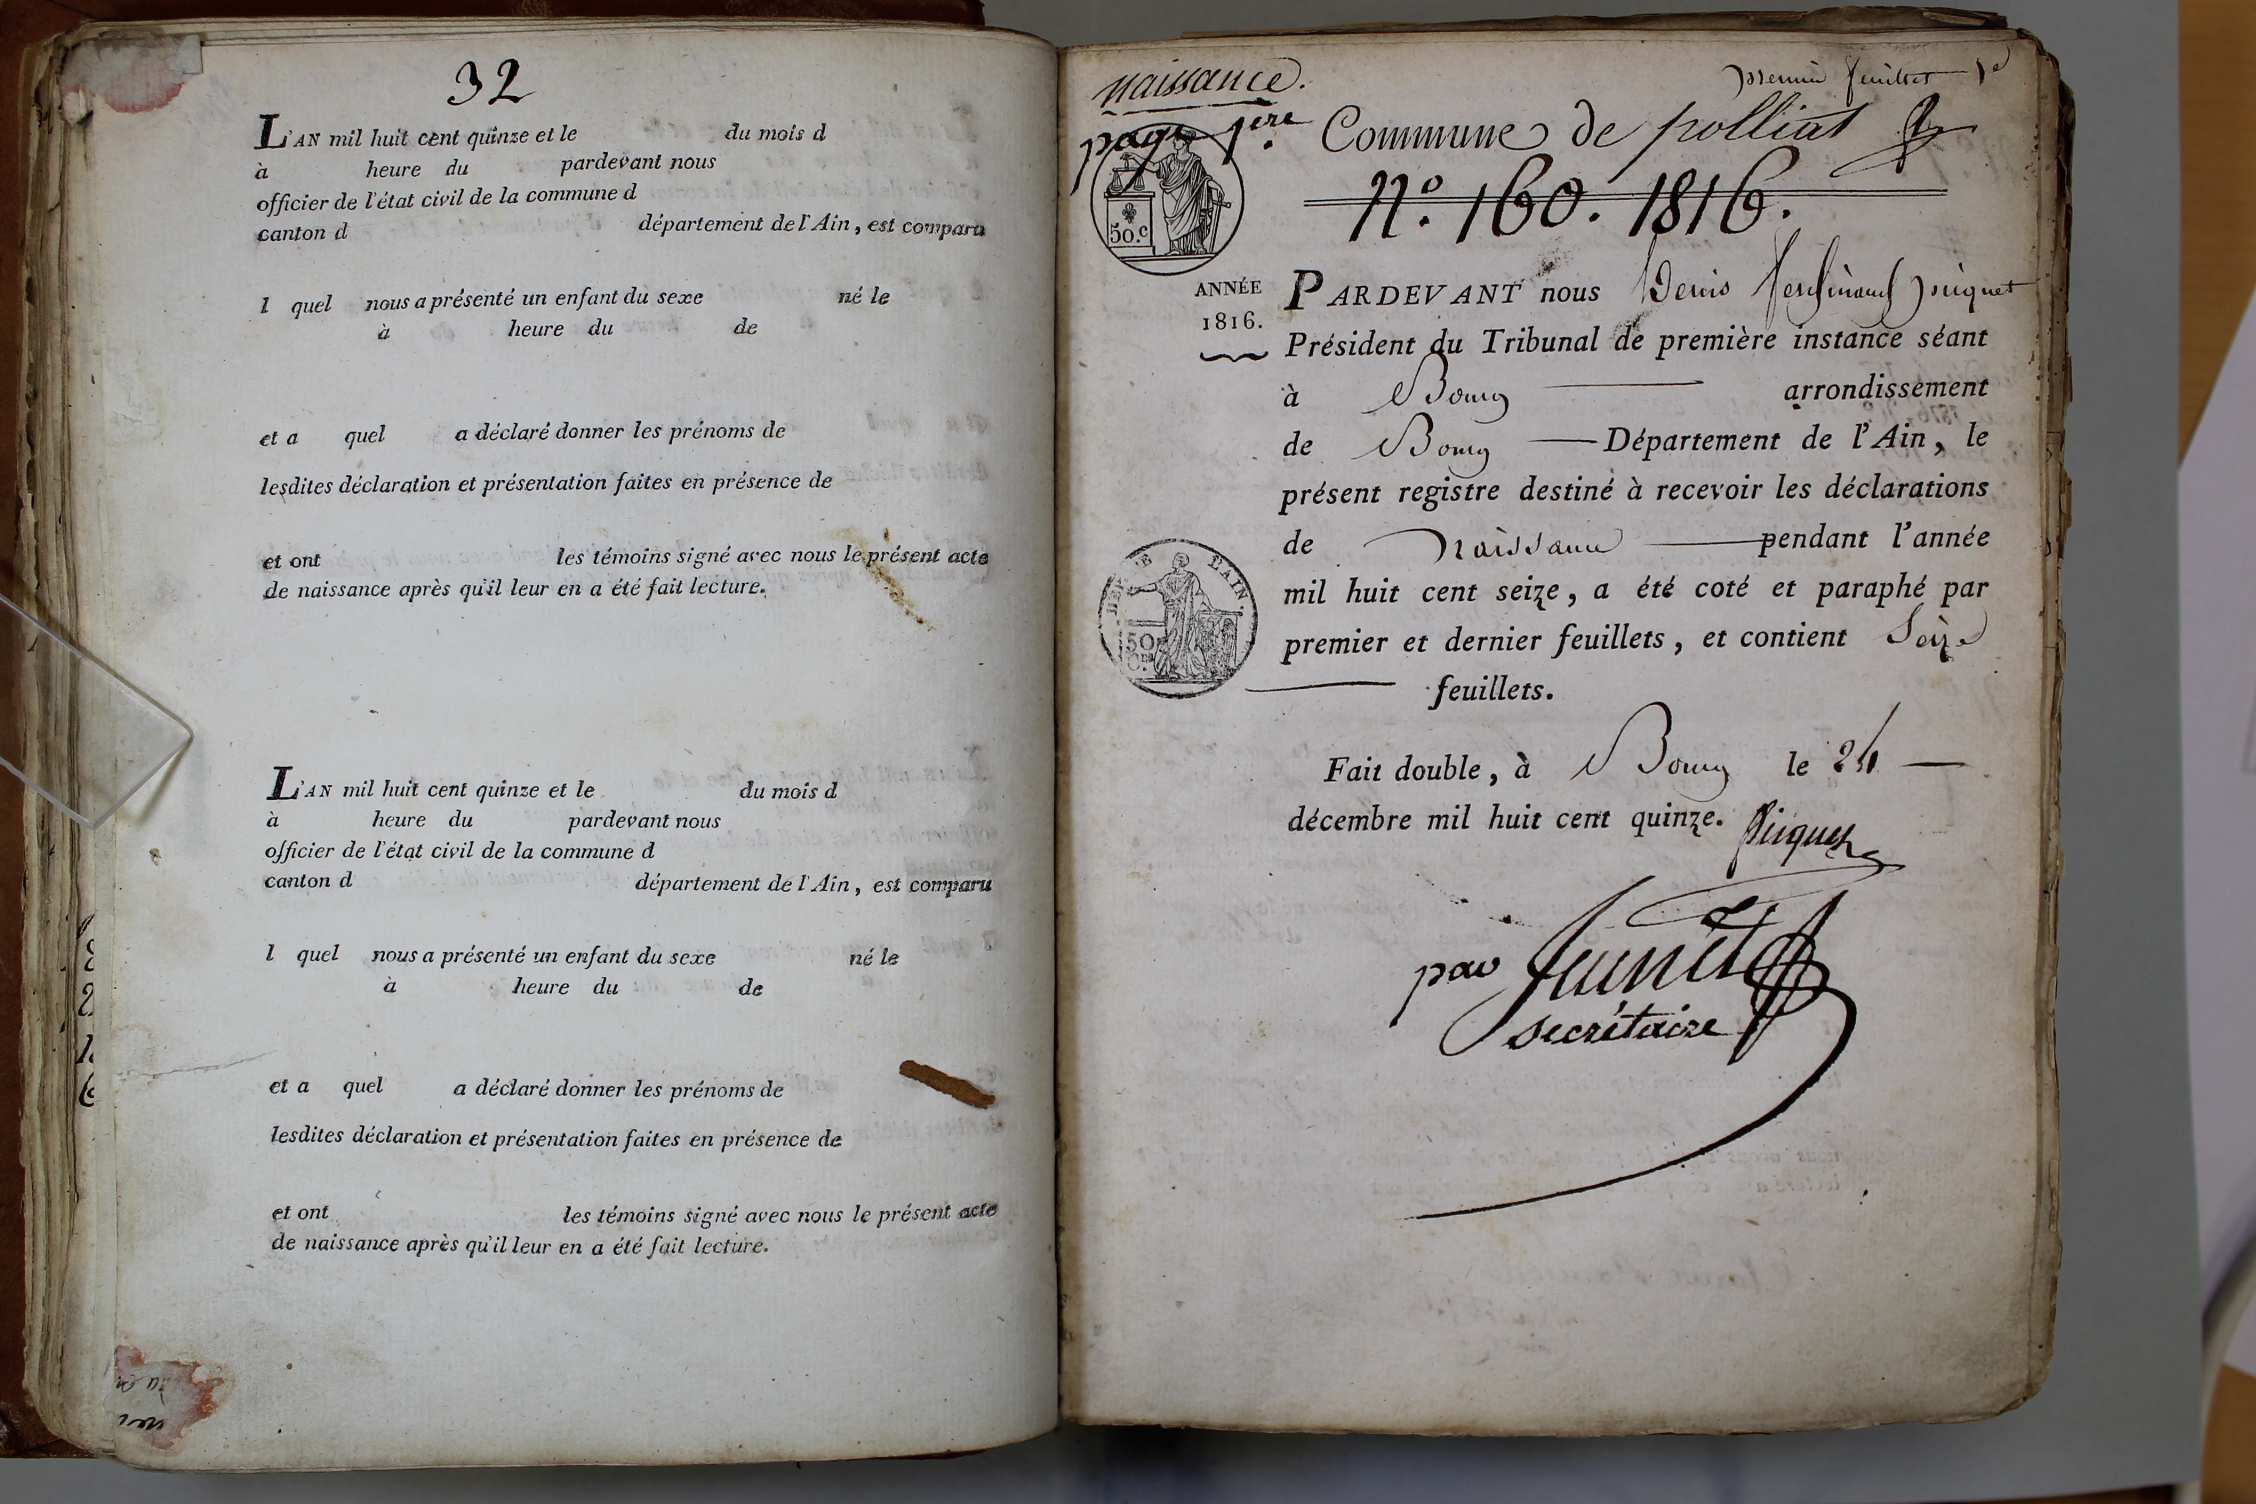 32
L'AN mil huit cent quinze et le du mois d
à heure du pardevant nous
officier de l'état civil de la commune d
canton d département de l'Ain, est comparu
l quel nous a présenté un enfant du sexe né le
à heure du de
et a quel a déclaré donner les prénoms de
lesdites déclaration et présentation faites en présence de
et ont les témoins signé avec nous le présent acte
de naissance après qu'il leur en a été fait lecture.
L'AN mil huit cent quinze et le du mois d
à heure du pardevant nous
officier de l'état civil de la commune d
canton d département de l'Ain, est comparu
l quel nous a présenté un enfant du sexe né le
à heure du de
et a quel a déclaré donner les prénoms de
lesdites déclaration et présentation faites en présence de
et ont les témoins signé avec nous le présent acte
de naissance après qu'il leur en a été fait lecture.
naissance.
premier feuillet
page 1.ere
Commune de polliat
N.° 160. 1816.
50.c
ANNÉE
1816.
PARDEVANT nous Denis ferdinand picquet
Président du Tribunal de première instance séant
à Bourg arrondissement
de Bourg Département de l'Ain, le
présent registre destiné à recevoir les déclarations
de naissance pendant l'année
mil huit cent seize, a été coté et paraphé par
premier et dernier feuillets, et contient Seize
feuillets.
L'AIN.
50
Fait double, à Bourg le 24
décembre mil huit cent quinze. Picquet
par
secrétaire